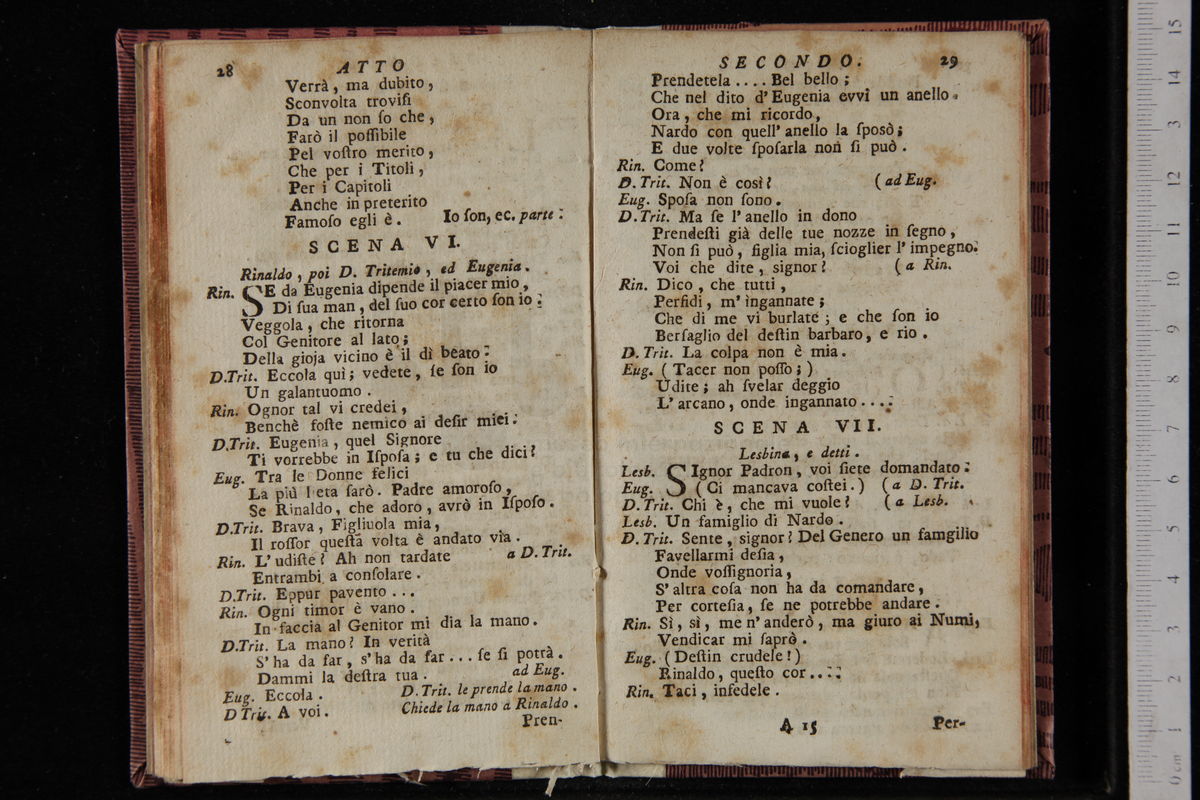 28 ATTO
Verrà, ma dubito,
Sconvolta troviſi
Da un non ſo che,
Farò il poſſibile
Pel voſtro merito,
Che per i Titoli,
Per i Capitoli
Anche in preterito
Famoſo egli è. Io ſon, ec. parte.
SCENA VI.
Rinaldo, poi D. Tritemio, ed Eugenia.
Rin. SE da Eugenia dipende il piacer mio,
Di ſua man, del ſuo cor certo ſon io.
Veggola, che ritorna
Col Genitore al lato;
Della gioja vicino è il dì beato.
D.Trit. Eccola quì; vedete, ſe ſon io
Un galantuomo.
Rin. Ognor tal vi credei,
Benchè foſte nemico ai deſir miei.
D.Trit. Eugenia, quel Signore
Ti vorrebbe in Iſpoſa; e tu che dici?
Eug. Tra le Donne felici
La più lieta ſarò. Padre amoroſo,
Se Rinaldo, che adoro, avrò in Iſpoſo.
D.Trit. Brava, Figliuola mia,
Il roſſor queſta volta è andato via.
Rin. L'udiſte? Ah non tardate a D. Trit.
Entrambi a conſolare.
D.Trit. Eppur pavento...
Rin. Ogni timor è vano.
In faccia al Genitor mi dia la mano.
D.Trit. La mano? In verità
S'ha da far, s'ha da far... ſe ſi potrà.
Dammi la deſtra tua. ad Eug.
Eug. Eccola. D. Trit. le prende la mano.
D Trit. A voi. Chiede la mano a Rinaldo.
Pren-
SECONDO. 29
Prendetela.... Bel bello;
Che nel dito d'Eugenia evvi un anello.
Ora, che mi ricordo,
Nardo con quell'anello la ſposò;
E due volte ſpoſarla non ſi può.
Rin. Come?
D. Trit. Non è così? (ad Eug.
Eug. Spoſa non ſono.
D. Trit. Ma ſe l'anello in dono
Prendeſti già delle tue nozze in ſegno,
Non ſi può, figlia mia, ſcioglier l'impegno.
Voi che dite, signor? (a Rin.
Rin. Dico, che tutti,
Perfidi, m'ingannate;
Che di me vi burlate; e che ſon io
Berſaglio del deſtin barbaro, e rio.
D. Trit. La colpa non è mia.
Eug. (Tacer non poſſo;)
Udite; ah ſvelar deggio
L'arcano, onde ingannato....
SCENA VII.
Lesbina, e detti.
Lesb. SIgnor Padron, voi ſiete domandato.
Eug. (Ci mancava coſtei.) (a D. Trit.
D. Trit. Chi è, che mi vuole? (a Lesb.
Lesb. Un famiglio di Nardo.
D. Trit. Sente, signor? Del Genero un famgilio
Favellarmi deſia,
Onde voſſignoria,
S'altra coſa non ha da comandare,
Per corteſia, ſe ne potrebbe andare.
Rin. Sì, sì, me n'anderò, ma giuro ai Numi,
Vendicar mi ſaprò.
Eug. (Deſtin crudele!)
Rinaldo, queſto cor....
Rin. Taci, infedele.
A 15 Per-
15
14
13
12
11
10
9
8
7
6
5
4
3
2
1
0 cm